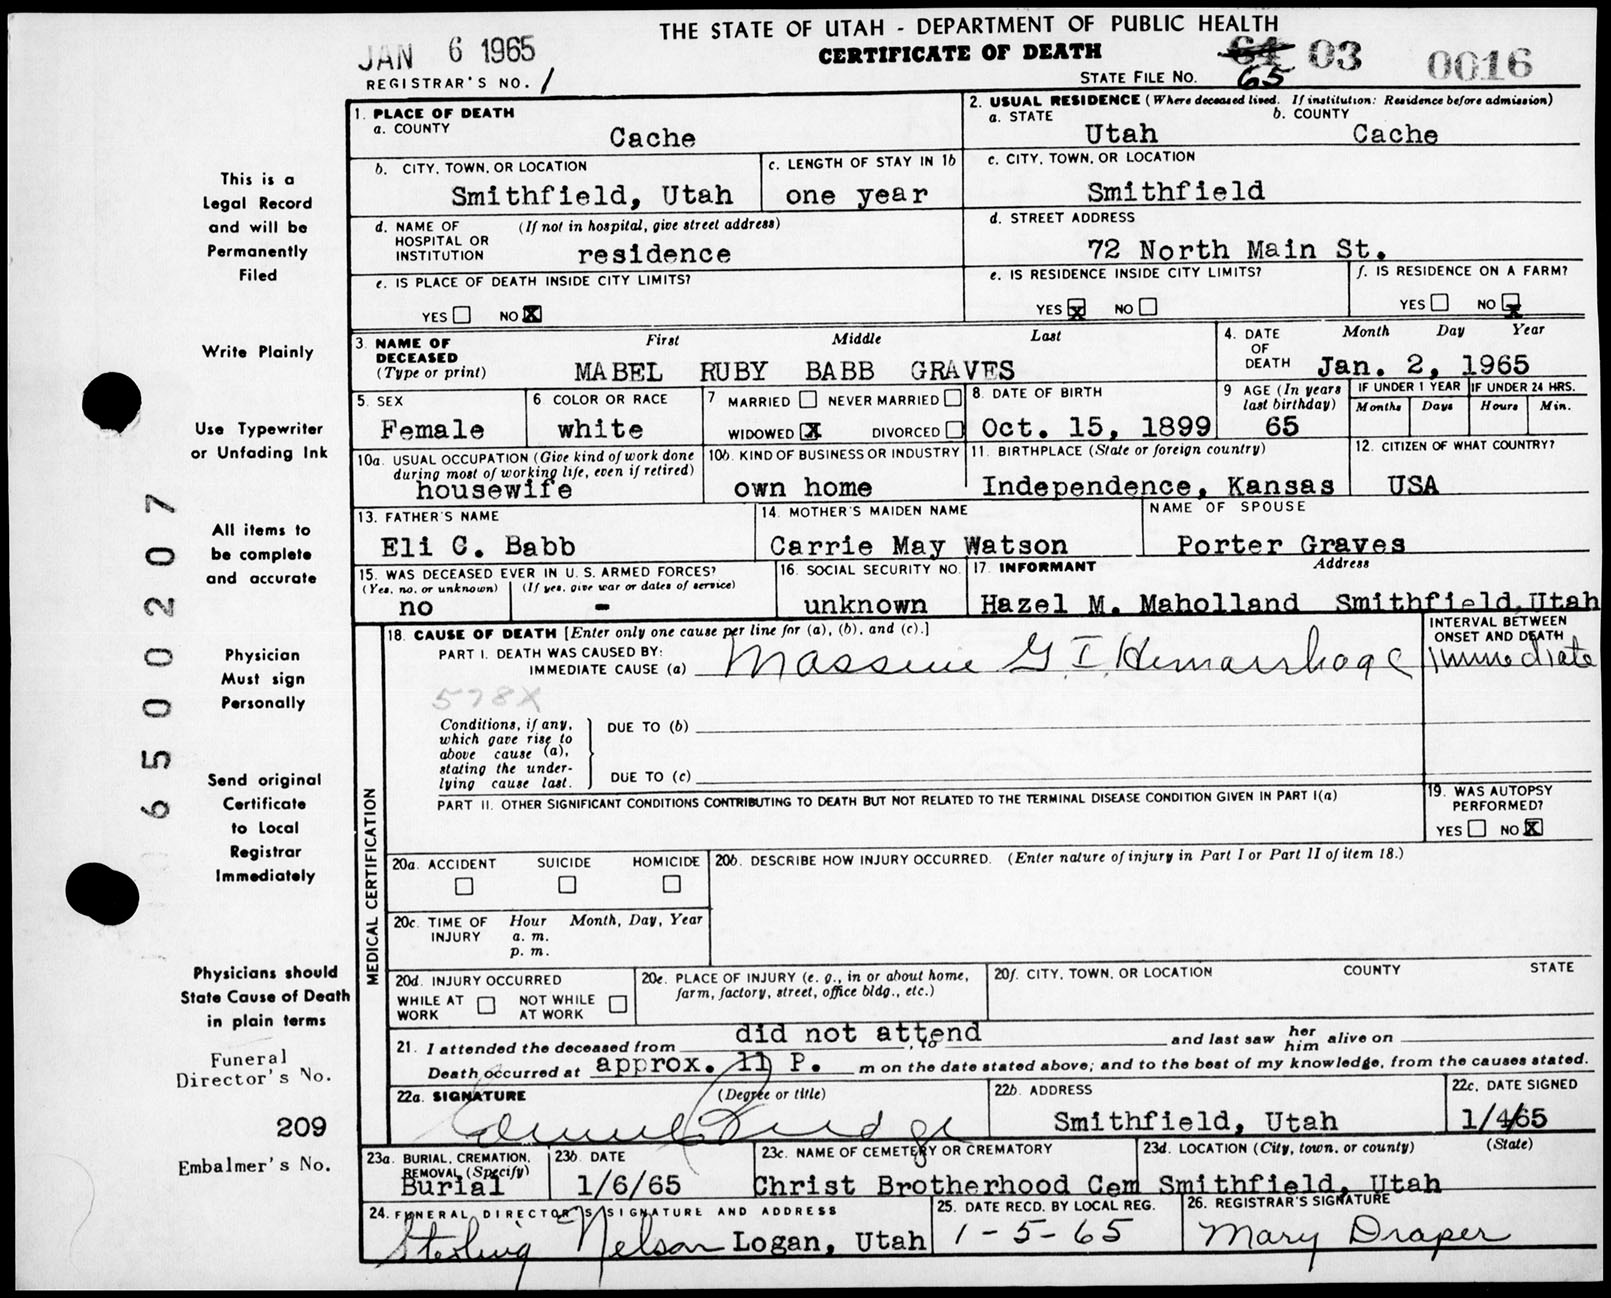 THE STATE OF UTAH - DEPARTMENT OF PUBLIC HEALTH
JAN 6 1965
CERTIFICATE OF DEATH
64 03 0016
REGISTRAR'S NO. 1
STATE FILE NO. 65
1. PLACE OF DEATH
a. COUNTY
Cache
2. USUAL RESIDENCE (Where deceased lived. If institution: Residence before admission)
a. STATE
Utah
b. COUNTY
Cache
b. CITY, TOWN, OR LOCATION
Smithfield, Utah
c. LENGTH OF STAY IN 1b
one year
c. CITY, TOWN, OR LOCATION
Smithfield
d. NAME OF HOSPITAL OR INSTITUTION
(If not in hospital, give street address)
residence
d. STREET ADDRESS
72 North Main St.
e. IS PLACE OF DEATH INSIDE CITY LIMITS?
YES NO X
e. IS RESIDENCE INSIDE CITY LIMITS?
YES X NO
f. IS RESIDENCE ON A FARM?
YES NO X
3. NAME OF DECEASED
(Type or print)
First Middle Last
MABEL RUBY BABB GRAVES
4. DATE OF DEATH
Month Day Year
Jan. 2, 1965
5. SEX
Female
6 COLOR OR RACE
white
7 MARRIED NEVER MARRIED
WIDOWED X DIVORCED
8. DATE OF BIRTH
Oct. 15, 1899
9 AGE (In years last birthday)
65
IF UNDER 1 YEAR
Months Days
IF UNDER 24 HRS.
Hours Min.
10a. USUAL OCCUPATION (Give kind of work done
during most of working life, even if retired)
housewife
10b. KIND OF BUSINESS OR INDUSTRY
own home
11. BIRTHPLACE (State or foreign country)
Independence, Kansas
12. CITIZEN OF WHAT COUNTRY?
USA
13. FATHER'S NAME
Eli C. Babb
14. MOTHER'S MAIDEN NAME
Carrie May Watson
NAME OF SPOUSE
Porter Graves
15. WAS DECEASED EVER IN U.S. ARMED FORCES?
(Yes, no, or unknown) (If yes, give war or dates of service)
no -
16. SOCIAL SECURITY NO.
unknown
17. INFORMANT Address
Hazel M. Maholland Smithfield, Utah
18. CAUSE OF DEATH [Enter only one cause per line for (a), (b), and (c).]
PART I. DEATH WAS CAUSED BY:
IMMEDIATE CAUSE (a) Massive G.I. Hemarrhage
INTERVAL BETWEEN
ONSET AND DEATH
Immediate
578X
Conditions, if any,
which gave rise to
above cause (a),
stating the under-
lying cause last.
DUE TO (b)
DUE TO (c)
PART II. OTHER SIGNIFICANT CONDITIONS CONTRIBUTING TO DEATH BUT NOT RELATED TO THE TERMINAL DISEASE CONDITION GIVEN IN PART I(a)
19. WAS AUTOPSY
PERFORMED?
YES NO X
MEDICAL CERTIFICATION
20a. ACCIDENT SUICIDE HOMICIDE
20b. DESCRIBE HOW INJURY OCCURRED. (Enter nature of injury in Part I or Part II of item 18.)
20c. TIME OF INJURY
Hour Month, Day, Year
a. m.
p. m.
20d. INJURY OCCURRED
WHILE AT WORK NOT WHILE AT WORK
20e. PLACE OF INJURY (e. g., in or about home,
farm, factory, street, office bldg., etc.)
20f. CITY, TOWN, OR LOCATION COUNTY STATE
21. I attended the deceased from did not attend, to and last saw her him alive on
Death occurred at approx. 11 P. m on the date stated above; and to the best of my knowledge, from the causes stated.
22a. SIGNATURE (Degree or title)
22b. ADDRESS
Smithfield, Utah
22c. DATE SIGNED
1/4/65
23a. BURIAL, CREMATION,
REMOVAL (Specify)
Burial
23b. DATE
1/6/65
23c. NAME OF CEMETERY OR CREMATORY
Christ Brotherhood Cem
23d. LOCATION (City, town, or county) (State)
Smithfield, Utah
24. FUNERAL DIRECTOR'S SIGNATURE AND ADDRESS
Sterling Nelson Logan, Utah
25. DATE RECD. BY LOCAL REG.
1-5-65
26. REGISTRAR'S SIGNATURE
Mary Draper
This is a
Legal Record
and will be
Permanently
Filed
Write Plainly
Use Typewriter
or Unfading Ink
All items to
be complete
and accurate
Physician
Must sign
Personally
Send original
Certificate
to Local
Registrar
Immediately
Physicians should
State Cause of Death
in plain terms
Funeral
Director's No.
209
Embalmer's No.
65000207